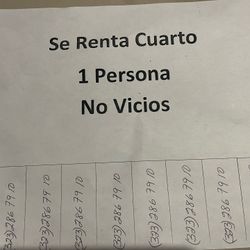 Se Renta Cuarto
1 Persona
No Vicios
(323)286 79 10
(323)286 79 10
(323)286 79 10
(323)286 79 10
(323)286 79 10
(323)286 79 10
(323)286 79 10